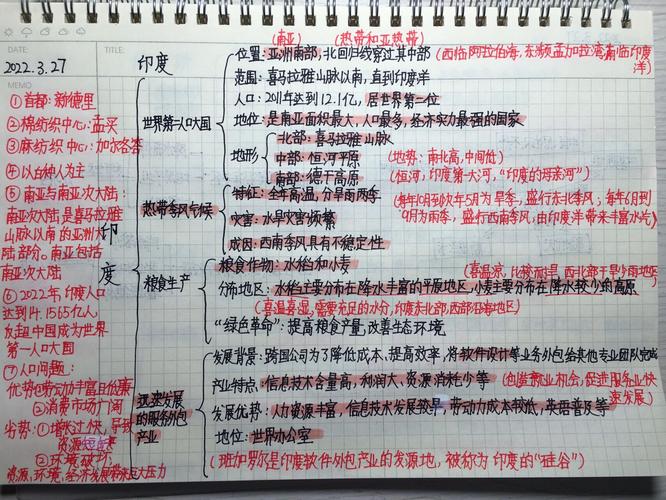 DATE:
TITLE:
2022.3.27
MEMO
印度
①首都:新德里
②棉纺织中心:孟买
③麻纺织中心:加尔各答
④以白种人为主
⑤南亚与南亚次大陆:
南亚次大陆是喜马拉雅
山脉以南的亚洲大
陆部分。南亚包括
南亚次大陆
⑥2022年,印度人口
达到14.1565亿人,
反超中国成为世界
第一人口大国
⑦人口问题:
优势①劳动力丰富且低廉
②消费市场广阔
劣势:①增长过快,导致
资源短缺
②环境破坏
资源、环境、经济发展带来巨大压力
印度
世界第一人口大国
(南亚) (热带和亚热带)
位置:亚洲南部,北回归线穿过其中部(西临阿拉伯海,东濒孟加拉湾,南临印度
洋)
范围:喜马拉雅山脉以南,直到印度洋
人口:2011年达到12.1亿,居世界第二位
地位:是南亚面积最大,人口最多,经济实力最强的国家
地形
北部:喜马拉雅山脉
中部:恒河平原 (地势:南北高,中间低)
南部:德干高原 (恒河,印度第一大河,“印度的母亲河”)
热带季风气候
特征:全年高温,分旱雨两季 (每年10月到次年5月为旱季,盛行东北季风;每年6月到
9月为雨季,盛行西南季风,由印度洋带来丰富水汽)
灾害:水旱灾害频繁
成因:西南季风具有不稳定性
粮食生产
粮食作物:水稻和小麦
(喜温凉,比较耐旱,西北部干旱少雨地区)
分布地区:水稻主要分布在降水丰富的平原地区,小麦主要分布在降水较少的高原
(喜温喜湿,需要充足的水分,印度东北部,西部沿海地区)
“绿色革命”:提高粮食产量,改善生态环境
迅速发展
的服务外包
产业
发展背景:跨国公司为了降低成本、提高效率,将软件设计等业务外包给其他专业团队完成
产业特点:信息技术含量高,利润大、资源消耗少等 (创造就业机会,促进服务业快
速发展)
发展优势:人力资源丰富,信息技术发展较早,劳动力成本较低,英语普及等
地位:世界办公室
(班加罗尔是印度软件外包产业的发源地,被称为印度的“硅谷”)